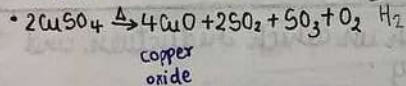 • 2CuSO4 Δ→ 4CuO + 2SO2 + SO3 + O2 H2
copper
oxide